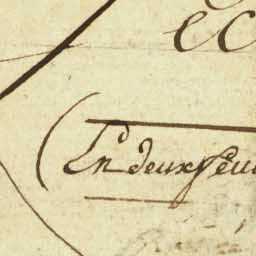 ec
(En deux feui